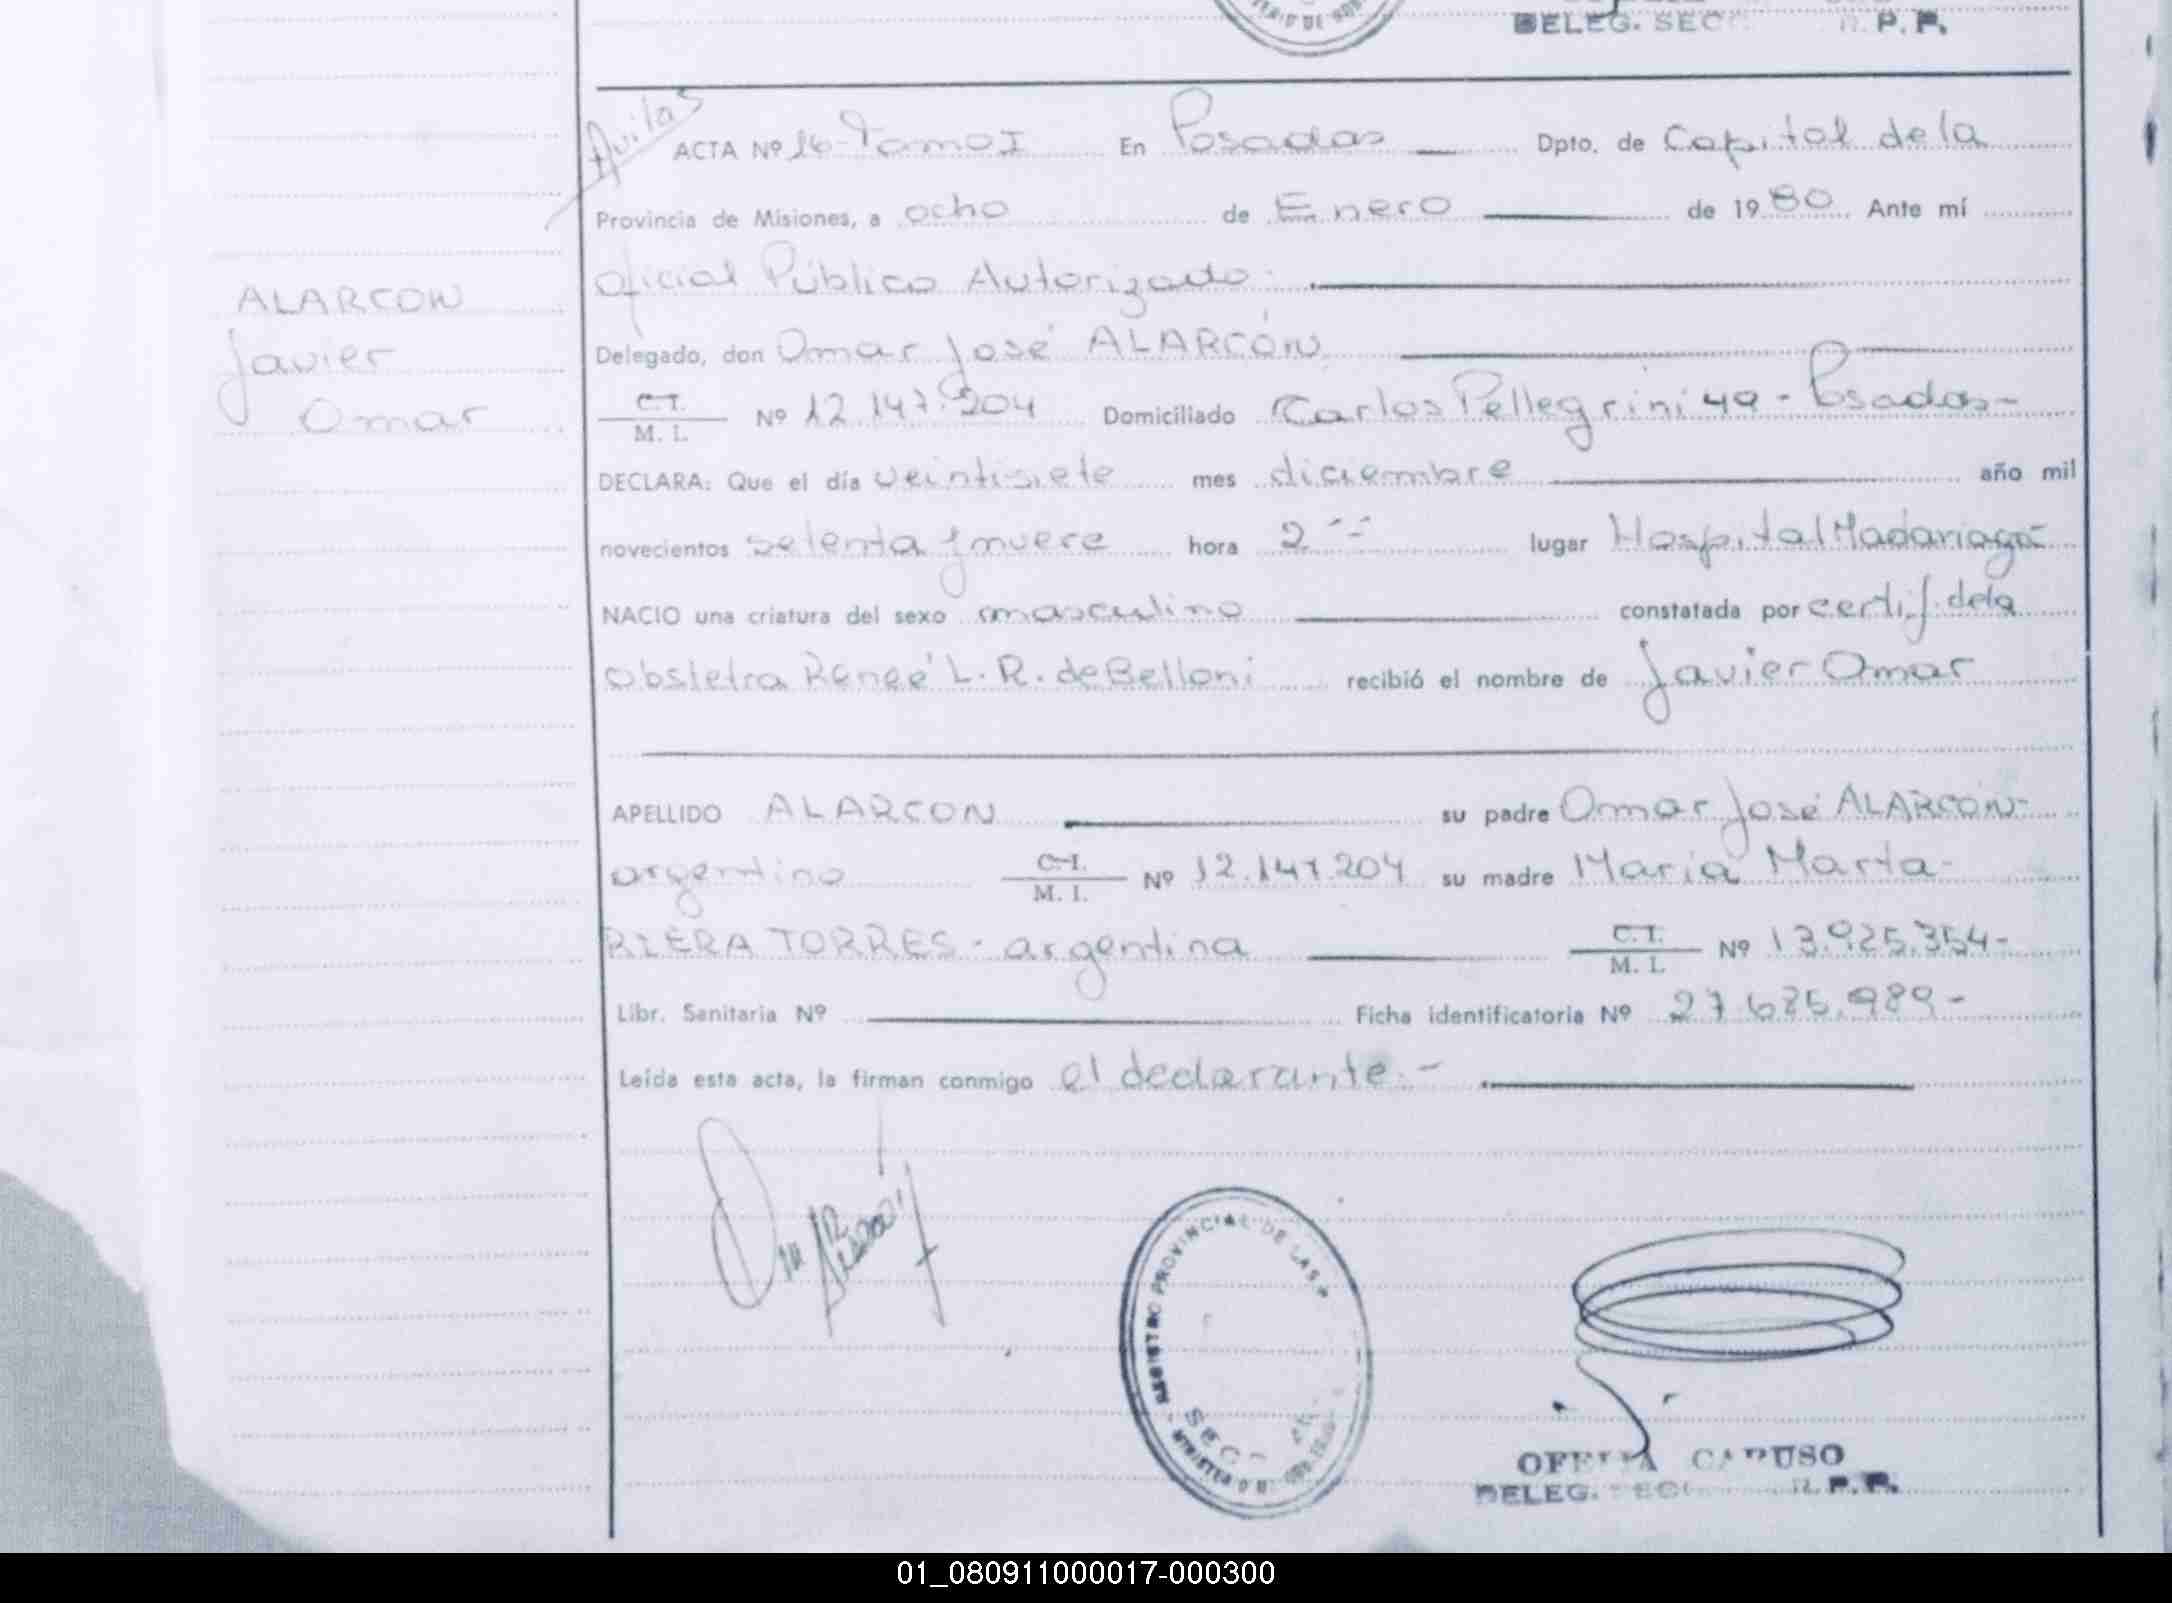 DELEG. SEC R. P. P.
Avilas
ACTA Nº 16- Tomo I En Posadas Dpto. de Capital de la
Provincia de Misiones, a ocho de Enero de 1980 Ante mí
Oficial Público Autorizado.
ALARCON
Javier
Omar
Delegado, don Omar José ALARCÓN
C.I.
M. I. Nº 12.147.204 Domiciliado Carlos Pellegrini 49 - Posadas-
DECLARA: Que el día veintisiete mes diciembre año mil
novecientos setenta y nueve hora 2 lugar Hospital Madariaga-
NACIO una criatura del sexo masculino constatada por certif. de la
Obstetra Reneé L. R. de Belloni recibió el nombre de Javier Omar
APELLIDO ALARCON su padre Omar José ALARCÓN-
argentino C.I.
M. I. Nº 12.147.204 su madre María Marta-
RIERA TORRES - argentina C.I.
M. I. Nº 13.925.354-
Libr. Sanitaria Nº Ficha identificatoria Nº 27.685.989-
Leída esta acta, la firman conmigo el declarante.-
REGISTRO PROVINCIAL DE LAS P
SEC
OFELIA CARUSO
DELEG. SECC R. P. P.
01_080911000017-000300